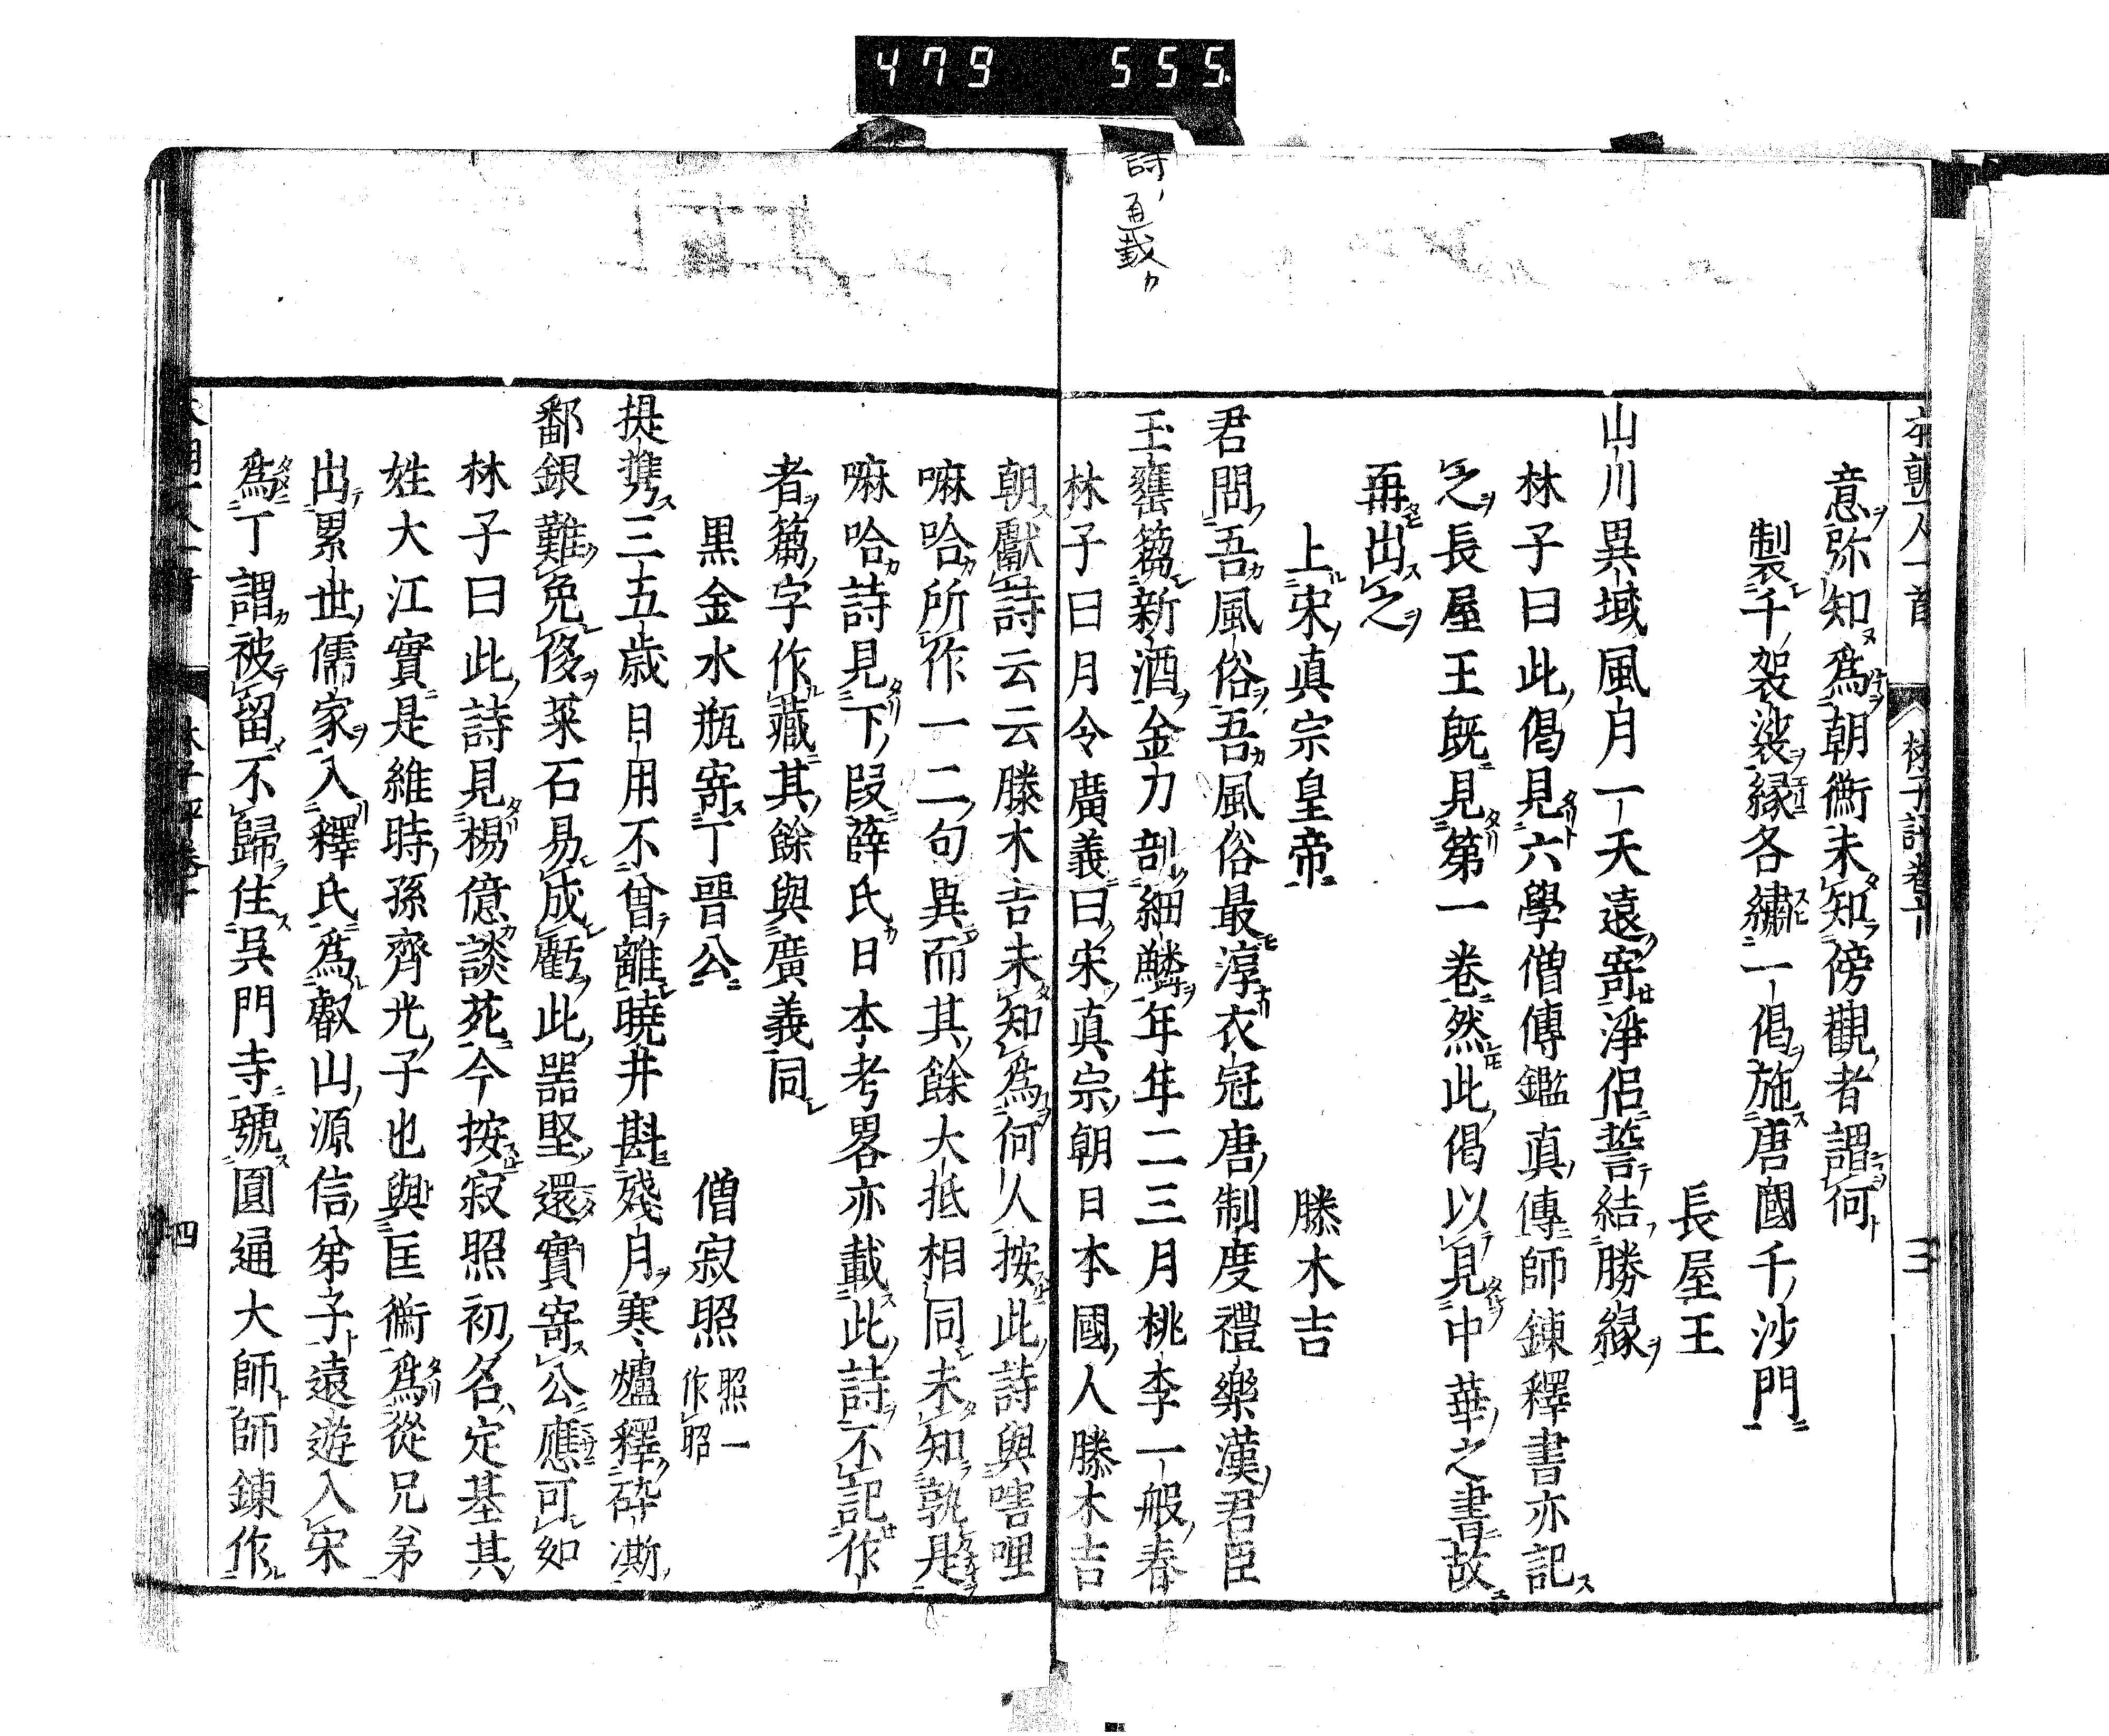 479 555
詩、通載カ
本朝一人一首 林子評卷十 三
意弥知爲朝衡未知傍觀者謂何
製千袈裟縁各繡一偈施唐國千沙門
長屋王
山川異域風月一天遠寄淨侶誓結勝縁
林子曰此偈見六學僧傳鑑真傳師錬釋書亦記
之長屋王既見第一卷然此偈以見中華之書故
再出之
上宋真宗皇帝 滕木吉
君問吾風俗吾風俗最淳衣冠唐制度禮樂漢君臣
玉甕篘新酒金刀剖細鱗年年二三月桃李一般春
林子曰月令廣義曰宋真宗朝日本國人滕木吉
朝獻詩云云滕木吉未知爲何人按此詩與嗐哩
嘛哈所作一二句異而其餘大抵相同未知孰是
嘛哈詩見下段薛氏日本考畧亦載此詩不記作
者篘字作藏其餘與廣義同
黒金水瓶寄丁晉公 僧寂照 照一作昭
提携三五歳日用不曾離曉井斟殘月寒爐釋砕澌
鄱銀難免侈萊石易成虧此器堅還實寄公應可知
林子曰此詩見楊億談苑今按寂照初名定基其
姓大江實是維時孫齊光子也與匡衡爲從兄弟
出累世儒家入釋氏爲叡山源信弟子遠遊入宋
爲丁謂被留不歸住呉門寺號圓通大師師錬作
四